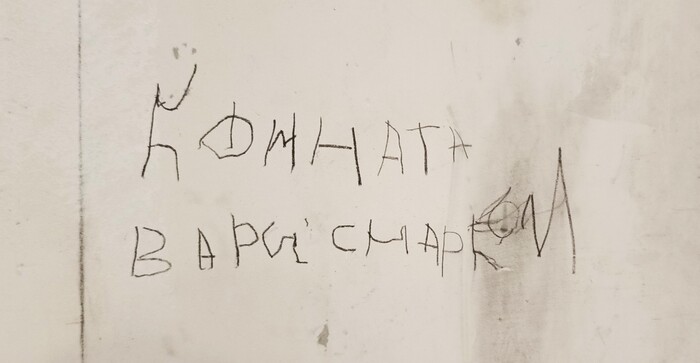 КОМНАТА
ВАРИ С МАРКОМ